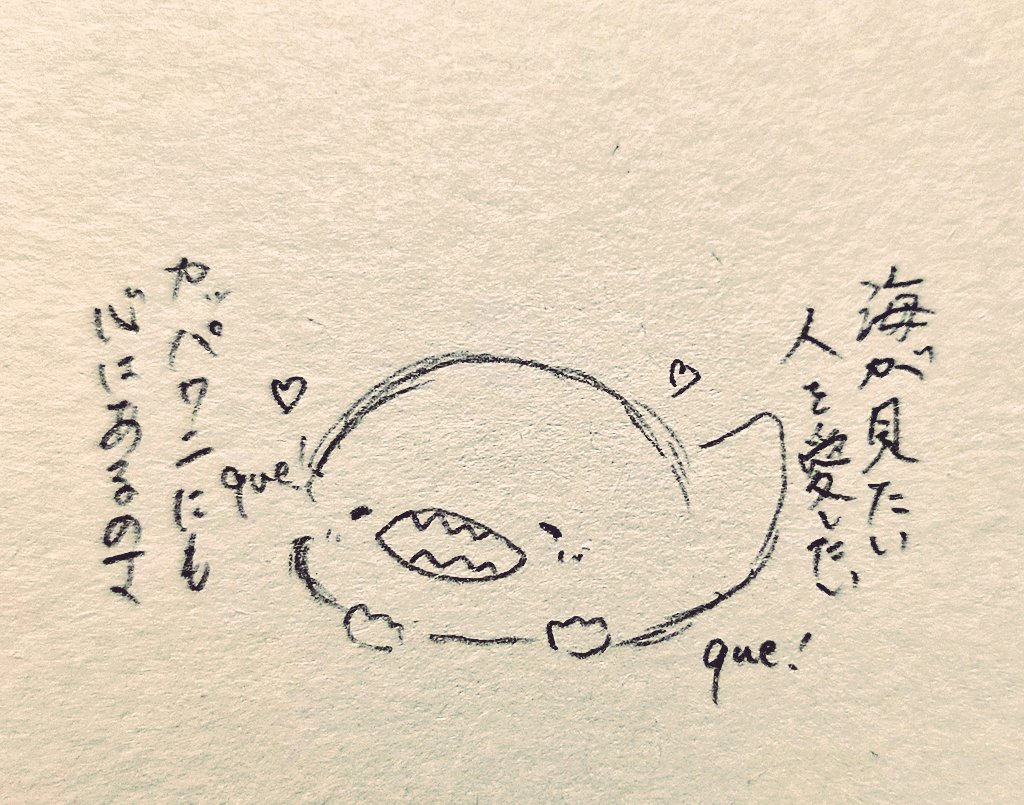 海が見たい
人を愛したい
ガペワニにも
心にあるのさ
que!
que!